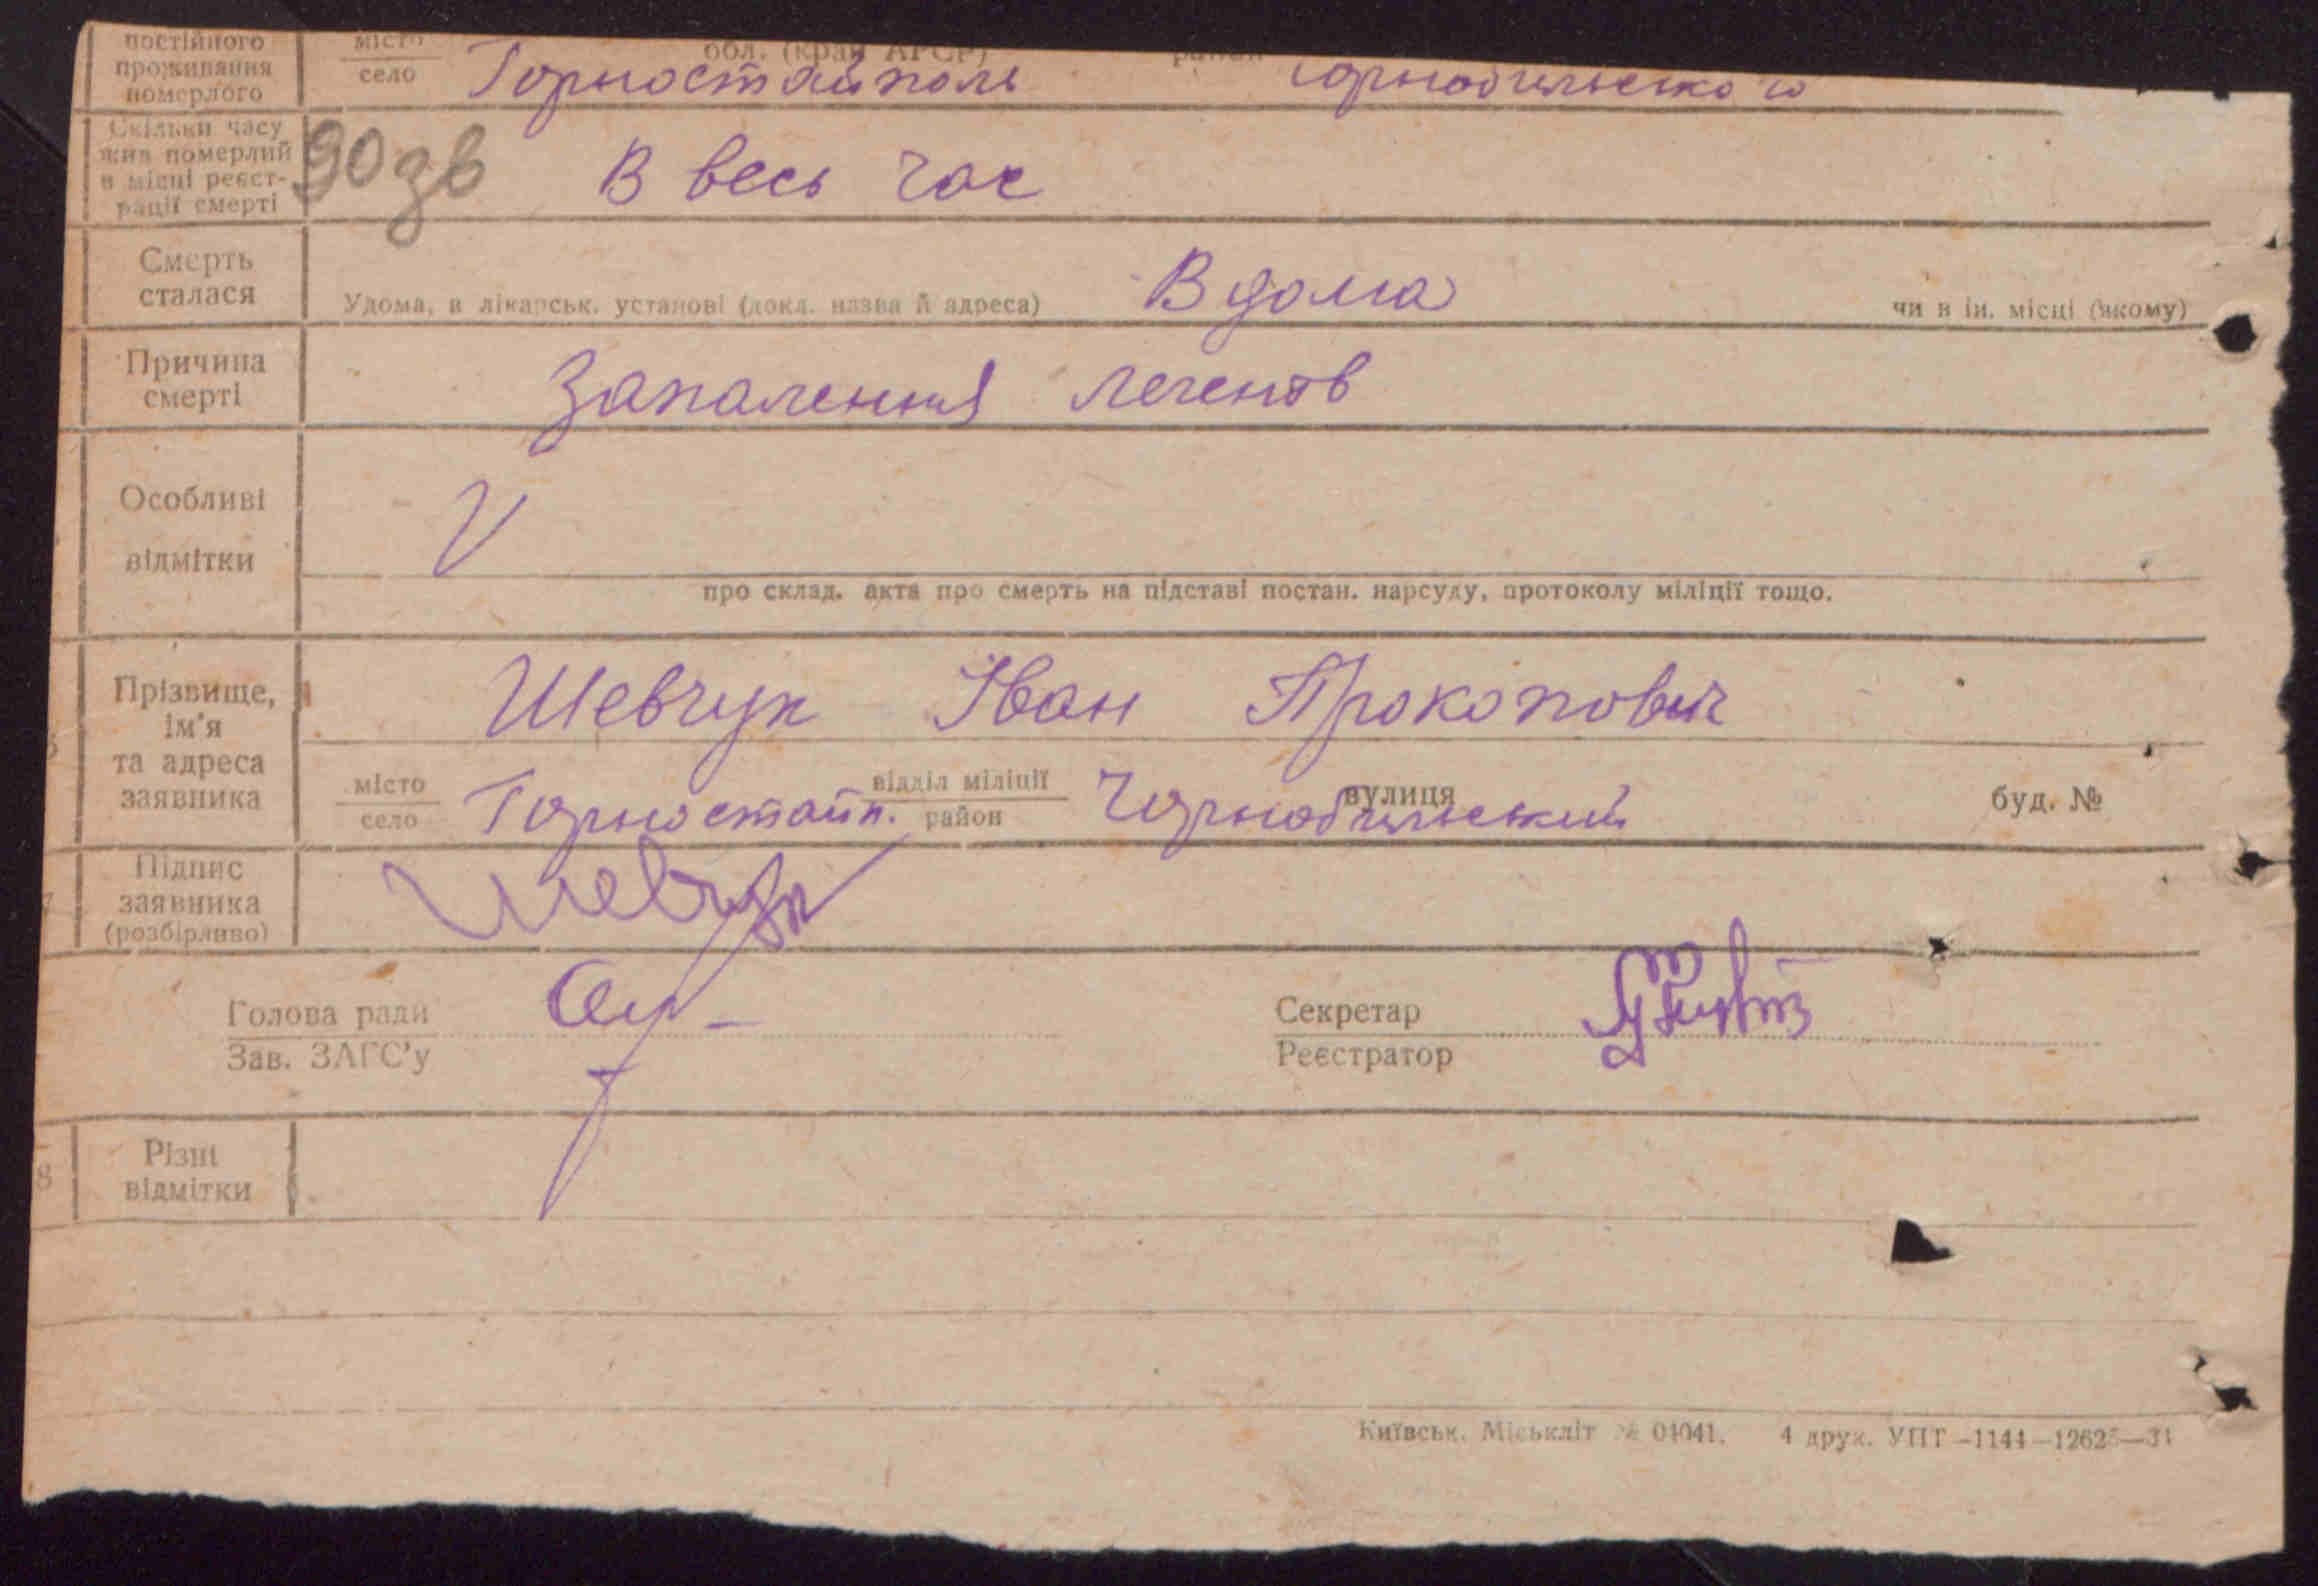 постійного
проживання
померлого
місто
село
обл. (край АРСР)
район
Горностайполь Чорнобильського
Скільки часу
жив померлий
в місці реєст-
рації смерті
90 зв В весь час
Смерть
сталася
Удома, в лікарськ. установі (докл. назва й адреса) Вдома чи в ін. місці (якому)
Причина
смерті
Запалення легенів
Особливі
відмітки
V
про склад. акта про смерть на підставі постан. нарсуду, протоколу міліції тощо.
Прізвище,
ім'я
та адреса
заявника
Шевчук Іван Прокопович
місто
село
Горностайп.
відділ міліції
район
Чорнобильський
вулиця
буд. №
7
Підпис
заявника
(розбірливо)
Шевчук
Голова ради
Зав. ЗАГС'у
Секретар
Реєстратор
8
Різні
відмітки
Київськ. Міськліт № 04041. 4 друк. УПТ –1144–12625–31